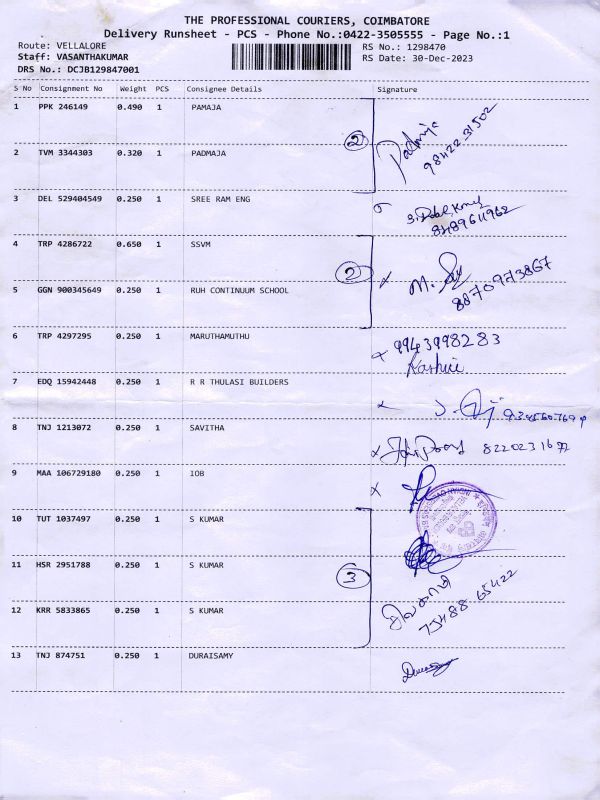 THE PROFESSIONAL COURIERS, COIMBATORE
Delivery Runsheet - PCS - Phone No.:0422-3505555 - Page No.:1
Route: VELLALORE
RS No.: 1298470
Staff: VASANTHAKUMAR
RS Date: 30-Dec-2023
DRS No.: DCJB129847001
S No Consignment No Weight PCS Consignee Details Signature
1 PPK 246149 0.490 1 PAMAJA
2 Padmija 98422 31502
2 TVM 3344303 0.320 1 PADMAJA
3 DEL 529404549 0.250 1 SREE RAM ENG
8489611962
4 TRP 4286722 0.650 1 SSVM
2 M. 8870973867
5 GGN 900345649 0.250 1 RUH CONTINUUM SCHOOL
6 TRP 4297295 0.250 1 MARUTHAMUTHU
9943998283
Kashini
7 EDQ 15942448 0.250 1 R R THULASI BUILDERS
8 TNJ 1213072 0.250 1 SAVITHA
9 MAA 106729180 0.250 1 IOB
10 TUT 1037497 0.250 1 S KUMAR
11 HSR 2951788 0.250 1 S KUMAR
3
12 KRR 5833865 0.250 1 S KUMAR
75488 65422
13 TNJ 874751 0.250 1 DURAISAMY